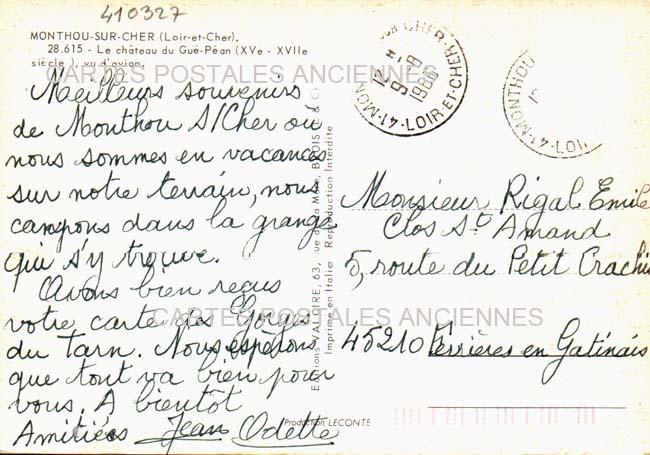 410327
MONTHOU-SUR-CHER (Loir-et-Cher).
28.615 - Le château du Gué-Péan (XVe - XVIIe
siècle), vu d'avion.
CARTES POSTALES ANCIENNES
Meilleurs souvenirs
de Monthou S/Cher où
nous sommes en vacances
sur notre terrain, nous
campons dans la grange
qui s'y trouve.
Avons bien reçus
votre carte des Gorges
du Tarn. Nous espérons
que tout va bien pour
vous. A bientôt
Amitiées Jean Odette
Editions VALOIRE, 63, rue de la Mare, BLOIS
Imprimé en Italie Reproduction Interdite
Production LECONTE
12 H
9-8
1986
41-MONTHOU CHER
LOIR-ET-CHER
MONTHOU
41
LOI
Monsieur Rigal Emile
Clos St Amand
5, route du Petit Crachi
CARTES POSTALES ANCIENNES
45210 Ferrières en Gatinais